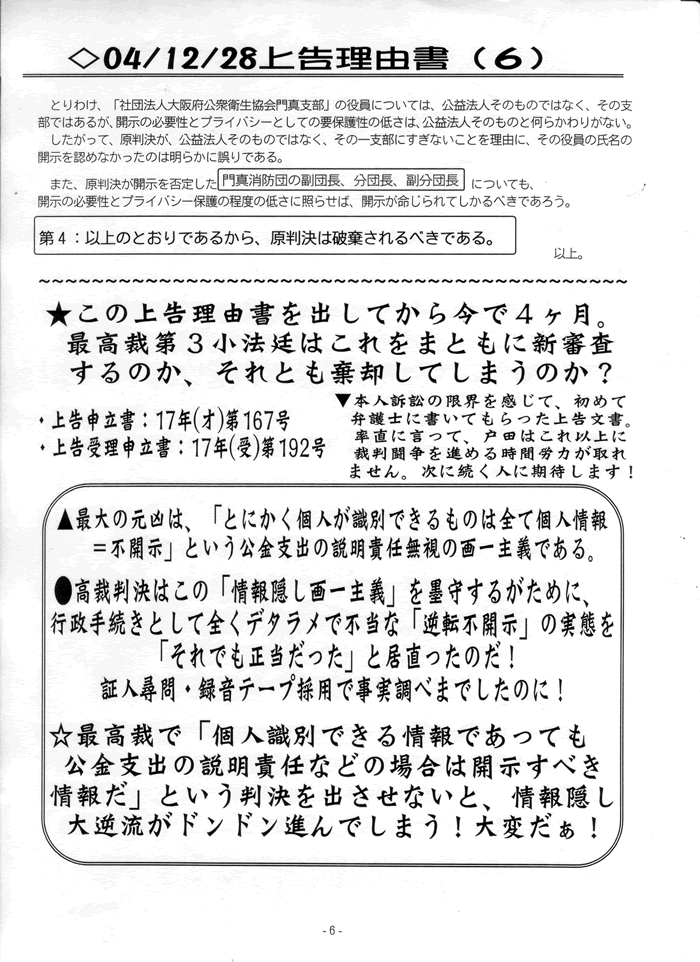 ◇04/12/28上告理由書（6）
とりわけ、「社団法人大阪府公衆衛生協会門真支部」の役員については、公益法人そのものではなく、その支
部ではあるが、開示の必要性とプライバシーとしての要保護性の低さは、公益法人そのものと何らかわりがない。
したがって、原判決が、公益法人そのものではなく、その一支部にすぎないことを理由に、その役員の氏名の
開示を認めなかったのは明らかに誤りである。
また、原判決が開示を否定した 門真消防団の副団長、分団長、副分団長 についても、
開示の必要性とプライバシー保護の程度の低さに照らせば、開示が命じられてしかるべきであろう。
第4：以上のとおりであるから、原判決は破棄されるべきである。
以上。
～～～～～～～～～～～～～～～～～～～～～～～～～～～～～～～～～～～～～～～～
★この上告理由書を出してから今で4ヶ月。
最高裁第3小法廷はこれをまともに新審査
するのか、それとも棄却してしまうのか？
・上告申立書：17年(オ)第167号
・上告受理申立書：17年(受)第192号
▼本人訴訟の限界を感じて、初めて
弁護士に書いてもらった上告文書。
率直に言って、戸田はこれ以上に
裁判闘争を進める時間労力が取れ
ません。次に続く人に期待します！
▲最大の元凶は、「とにかく個人が識別できるものは全て個人情報
＝不開示」という公金支出の説明責任無視の画一主義である。
●高裁判決はこの「情報隠し画一主義」を墨守するがために、
行政手続きとして全くデタラメで不当な「逆転不開示」の実態を
「それでも正当だった」と居直ったのだ！
証人尋問・録音テープ採用で事実調べまでしたのに！
☆最高裁で「個人識別できる情報であっても
公金支出の説明責任などの場合は開示すべき
情報だ」という判決を出させないと、情報隠し
大逆流がドンドン進んでしまう！大変だぁ！
-6-